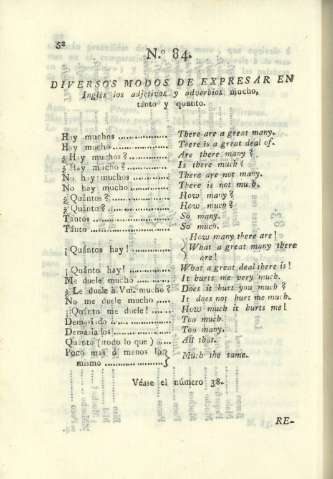 52
N.º 84.
DIVERSOS MODOS DE EXPRESAR EN
Ingles los adjetivos y adverbios mucho,
tanto y quanto.
Hay muchos ................ There are a great many.
Hay mucho ................. There is a great deal of.
¿ Hay muchos ? ............ Are there many ?
¿ Hay mucho ? ............. Is there much ?
No hay muchos ............. There are not many.
No hay mucho .............. There is not much.
¿ Quántos ? ............... How many ?
¿ Quánto ? ................ How much ?
Tántos .................... So many.
Tánto ..................... So much.
¡ Quántos hay! ............ { How many there are !
What a great many there
are!
¡ Quánto hay! ............. What a great deal there is !
Me duele mucho ............ It hurts me very much.
¿ Le duele á Vm. mucho ? Does it hurt you much ?
No me duele mucho ..... It does not hurt me much.
¡ Quánto me duele ! ....... How much it hurts me !
Demasiado ................. Too much.
Demasiados ................ Too many.
Quanto (todo lo que) .... All that.
Poco mas ó menos lo
mismo ..................... } Much the same.
Véase el número 38.
RE-